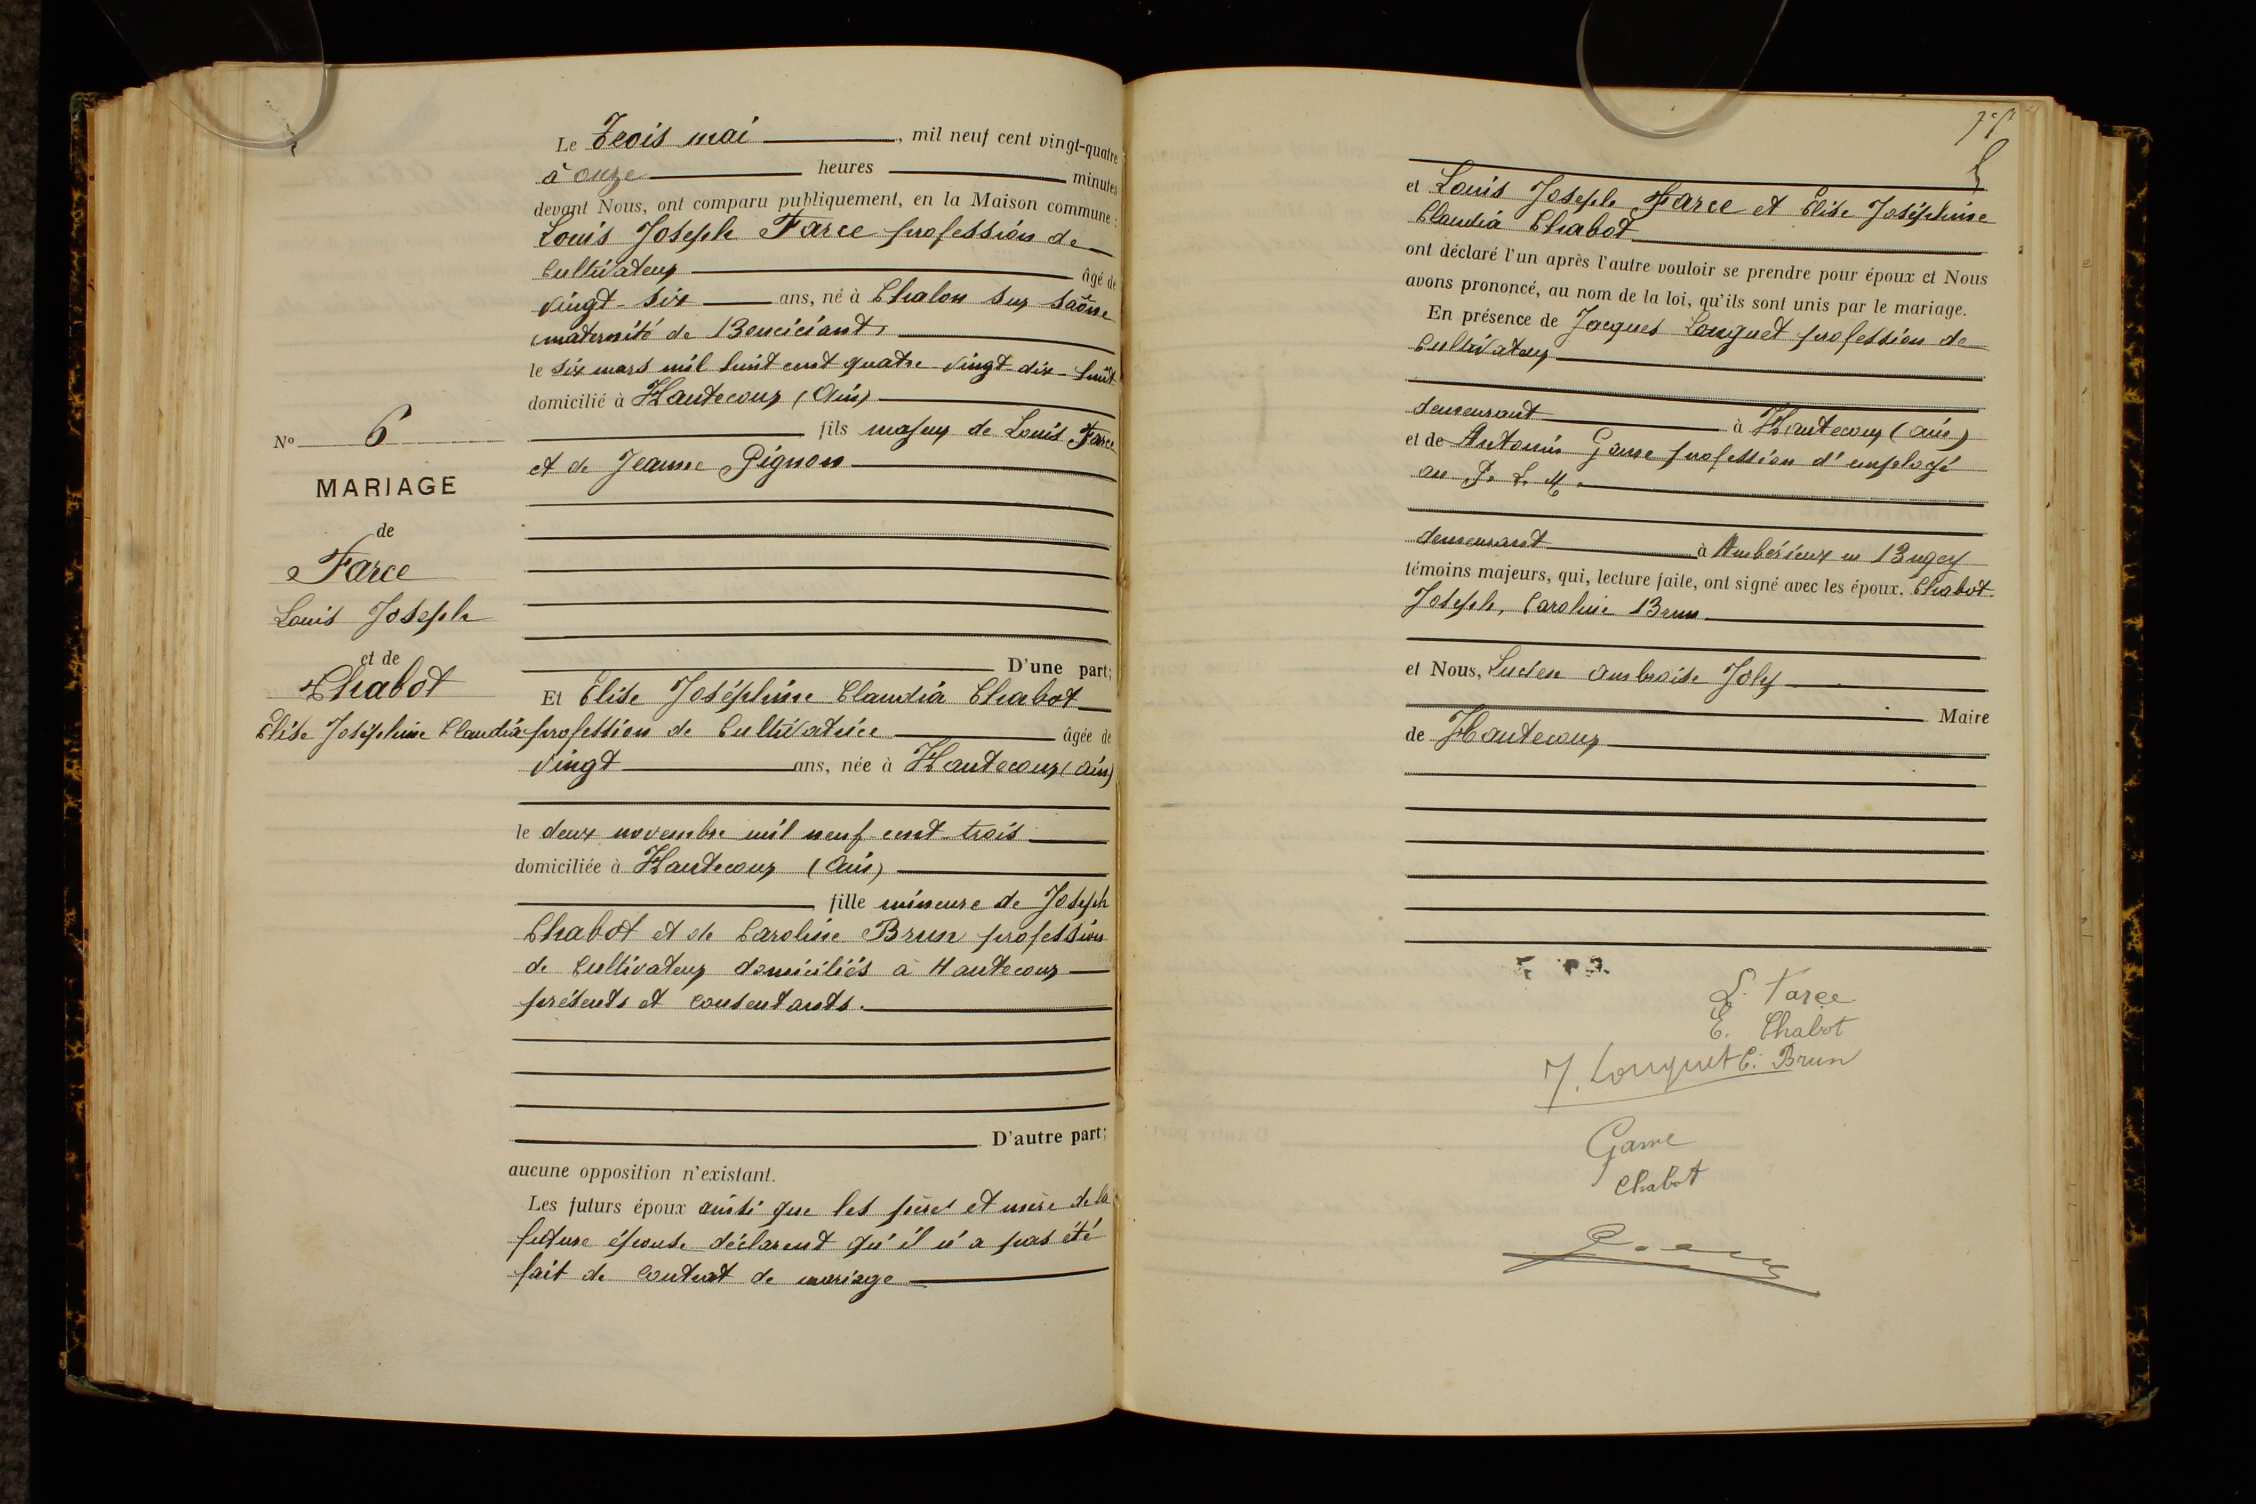 N° 6
MARIAGE
de
Farce
Louis Joseph
et de
Chabot
Elise Joséphine Claudia
Le Trois mai, mil neuf cent vingt-quatre
à onze heures minutes
devant Nous, ont comparu publiquement, en la Maison commune :
Louis Joseph Farce profession de
Cultivateur âgé de
vingt-six ans, né à Chalon sur Saône
maternité de
le six mars mil huit cent quatre vingt dix-huit
domicilié à Hautecour (Ain)
fils majeur de Louis Farce
et de Jeanne Pignon
D'une part;
Et Elise Joséphine Claudia Chabot
profession de Cultivatrice âgée de
vingt ans, née à Hautecour (Ain)
le deux novembre mil neuf cent trois
domiciliée à Hautecour (Ain)
fille mineure de Joseph
Chabot et de Caroline Brun profession
de Cultivateur domiciliés à Hautecour
présents et consentants.
D'autre part;
aucune opposition n'existant.
Les futurs époux ainsi que les père et mère de la
future épouse déclarent qu'il n'a pas été
fait de contrat de mariage
et Louis Joseph Farce et Elise Joséphine
Claudia Chabot
ont déclaré l'un après l'autre vouloir se prendre pour époux et Nous
avons prononcé, au nom de la loi, qu'ils sont unis par le mariage.
En présence de Jacques Longuet profession de
Cultivateur
demeurant à Hautecour (Ain)
et de Antonin Game profession d'employé
au P. L. M.
demeurant à Ambérieux en Bugey
témoins majeurs, qui, lecture faite, ont signé avec les époux. Chabot
Joseph, Caroline Brun
et Nous, Lucien Ambroise Joly
Maire
de Hautecour
L. Farce
E. Chabot
J. Longuet C. Brun
Game
Chabot